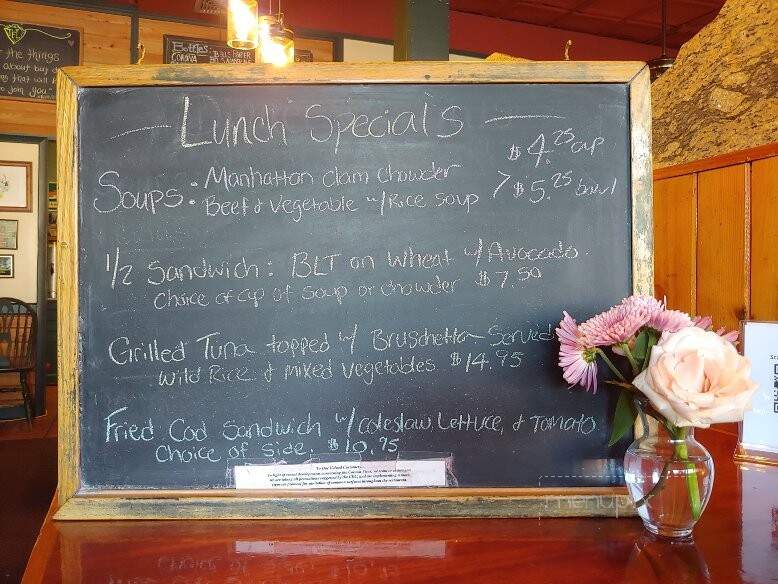 the things
Bottles
CORONA
Lunch Specials
Soups: Manhattan clam chowder $4.25 cup
Beef & Vegetable w/Rice soup $5.25 bowl
1/2 Sandwich: BLT on Wheat w/Avocado
Choice of cup of soup or chowder $7.50
Grilled Tuna topped w/ Bruschetta Served
Wild Rice & mixed vegetables $14.95
Fried Cod Sandwich w/coleslaw, Lettuce, & Tomato
Choice of Side. $10.95
To Our Valued Customers,
menupix